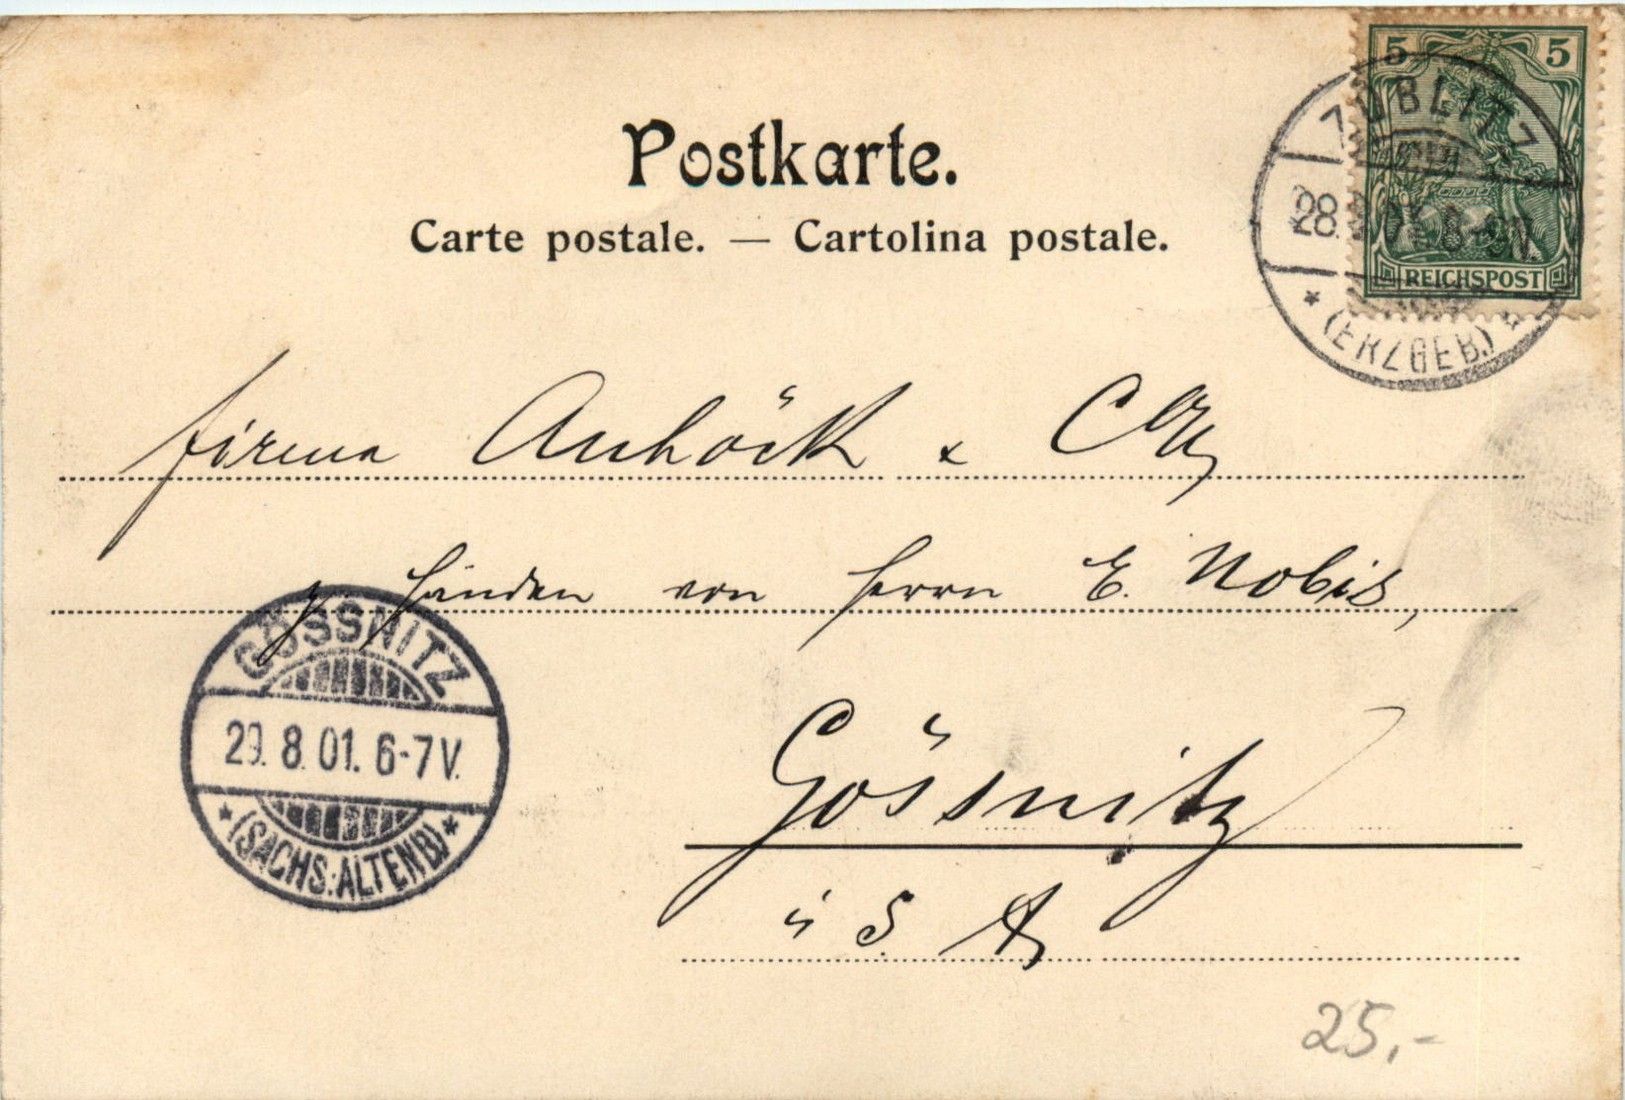 Postkarte.
Carte postale. — Cartolina postale.
5 5
REICHSPOST
ZÖBLITZ
28. 8-9N.
* (ERZGEB.) *
Firma Anhöck & Co
z. Händen von Herrn E. Nobis,
Gössnitz
i S. A
GÖSSNITZ
29. 8. 01. 6-7V.
* (SACHS.-ALTENB.) *
25,-